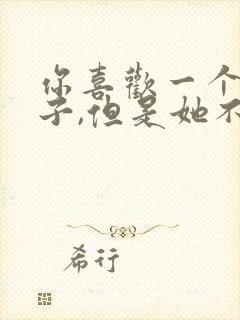 你喜歡一个
子,但是她不
希行